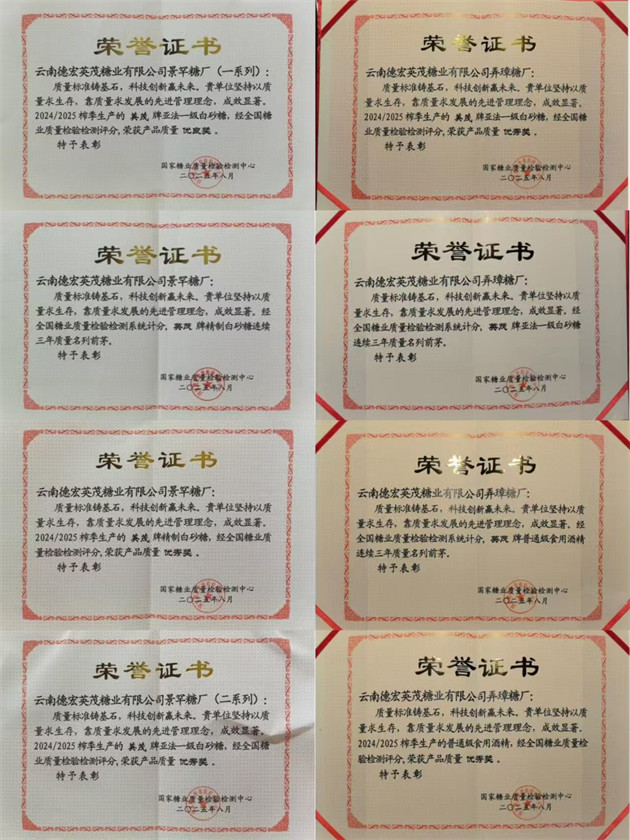 荣誉证书
云南德宏英茂糖业有限公司景罕糖厂（一系列）：
质量标准铸基石，科技创新赢未来。贵单位坚持以质
量求生存，靠质量求发展的先进管理理念，成效显著。
2024/2025榨季生产的 英茂 牌亚法一级白砂糖，经全国糖
业质量检验检测评分，荣获产品质量 优秀奖 。
特予表彰
国家糖业质量检验检测中心
二〇二五年八月
荣誉证书
云南德宏英茂糖业有限公司弄璋糖厂：
质量标准铸基石，科技创新赢未来。贵单位坚持以质
量求生存，靠质量求发展的先进管理理念，成效显著。
2024/2025榨季生产的 英茂 牌亚法一级白砂糖，经全国糖
业质量检验检测评分，荣获产品质量 优秀奖 。
特予表彰
国家糖业质量检验检测中心
二〇二五年八月
荣誉证书
云南德宏英茂糖业有限公司景罕糖厂：
质量标准铸基石，科技创新赢未来。贵单位坚持以质
量求生存，靠质量求发展的先进管理理念，成效显著。经
全国糖业质量检验检测系统计分，英茂 牌精制白砂糖连续
三年质量名列前茅。
特予表彰
国家糖业质量检验检测中心
二〇二五年八月
荣誉证书
云南德宏英茂糖业有限公司弄璋糖厂：
质量标准铸基石，科技创新赢未来。贵单位坚持以质
量求生存，靠质量求发展的先进管理理念，成效显著。经
全国糖业质量检验检测系统计分，英茂 牌亚法一级白砂糖
连续三年质量名列前茅。
特予表彰
国家糖业质量检验检测中心
二〇二五年八月
荣誉证书
云南德宏英茂糖业有限公司景罕糖厂：
质量标准铸基石，科技创新赢未来。贵单位坚持以质
量求生存，靠质量求发展的先进管理理念，成效显著。
2024/2025榨季生产的 英茂 牌精制白砂糖，经全国糖业质
量检验检测评分，荣获产品质量 优秀奖 。
特予表彰
国家糖业质量检验检测中心
二〇二五年八月
荣誉证书
云南德宏英茂糖业有限公司弄璋糖厂：
质量标准铸基石，科技创新赢未来。贵单位坚持以质
量求生存，靠质量求发展的先进管理理念，成效显著。经
全国糖业质量检验检测系统计分，英茂 牌普通级食用酒精
连续三年质量名列前茅。
特予表彰
国家糖业质量检验检测中心
二〇二五年八月
荣誉证书
云南德宏英茂糖业有限公司景罕糖厂（二系列）：
质量标准铸基石，科技创新赢未来。贵单位坚持以质
量求生存，靠质量求发展的先进管理理念，成效显著。
2024/2025榨季生产的 英茂 牌亚法一级白砂糖，经全国糖
业质量检验检测评分，荣获产品质量 优秀奖 。
特予表彰
国家糖业质量检验检测中心
二〇二五年八月
荣誉证书
云南德宏英茂糖业有限公司弄璋糖厂：
质量标准铸基石，科技创新赢未来。贵单位坚持以质
量求生存，靠质量求发展的先进管理理念，成效显著。
2024/2025榨季生产的普通级食用酒精，经全国糖业质量检
验检测评分，荣获产品质量 优秀奖 。
特予表彰
国家糖业质量检验检测中心
二〇二五年八月